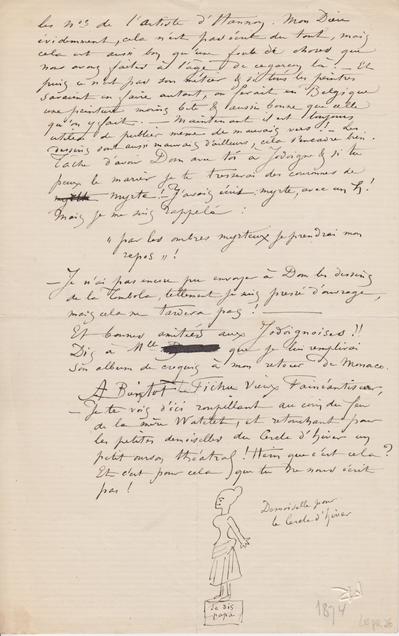 les nos de l'artiste d'Hannoy. Mon Dieu
évidemment, cela n'est pas écrit du tout, mais
cela est aussi bon qu'une foule de choses que
nous avons faites à l'âge de ce garçon là! – Et
puis ce n'est pas son métier & si tous les peintres
savaient en faire autant, on ferait en Belgique
une peinture moins bête & aussi bonne que celle
qu'on y fait. – Maintenant il est toujours
utile de publier même de mauvais vers! – Les
dessins sont aussi mauvais d'ailleurs, cela s'encadre bien.
Tâche d'avoir Dom avec toi à Jodoigne & si tu
peux le marier je te tresserai des couronnes de
myrte! J'avais écrit myrte, avec un h!
Mais je me suis rappelé :
"par les ombres myrteux je prendrai mon
repos"!
– Je n'ai pas encore pu envoyer à Dom les dessins
de la Tombola, tellement je suis pressé d'ouvrage,
mais cela ne tardera pas! –
Et bonnes amitiés aux Jodoignoises!!
Dis à Mlle que je lui remplirai
son album de croquis à mon retour de Monaco.
A Bientôt – Fichu Vieux Fainéantiser,
– Je te vois d'ici roupillant au coin du feu
de la mère Watelet, et retouchant pour
les petites demoiselles du Cercle d'hiver un
petit ourson théâtral! Hein que c'est cela?
Et c'est pour cela que tu ne nous écrit
pas!
Demoiselle pour
le Cercle d'hiver
Je dis
papa
1874